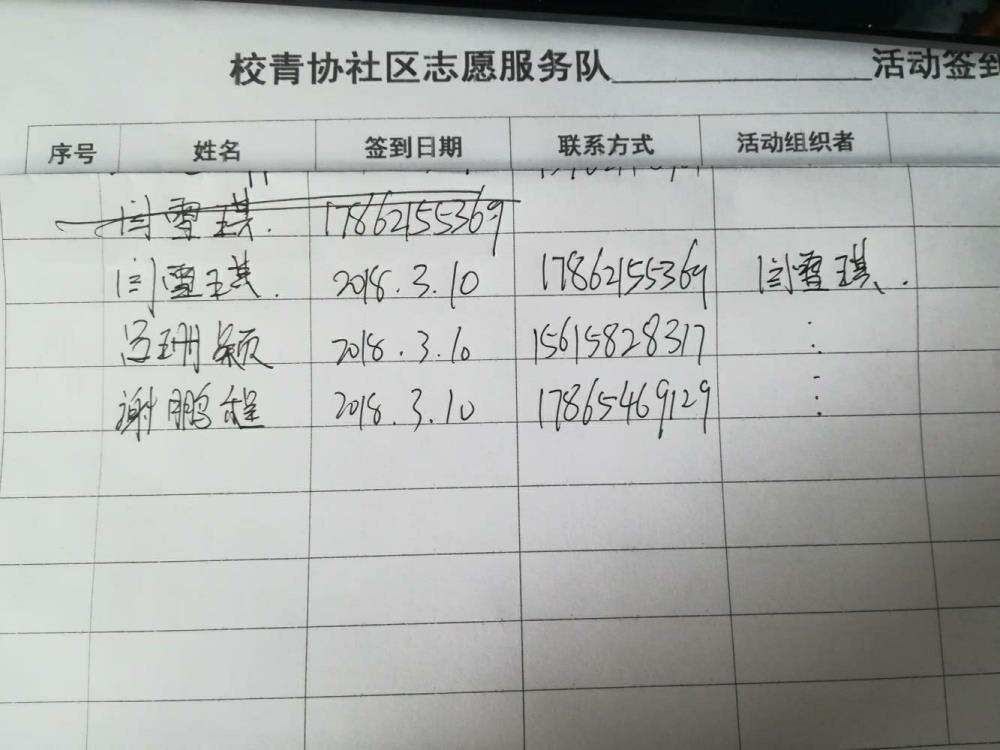 校青协社区志愿服务队____________活动签到
序号 姓名 签到日期 联系方式 活动组织者
闫雪琪. 17862155369
闫雪琪. 2018.3.10 17862155369 闫雪琪.
吕珊颖 2018.3.10 15615828317 :
谢鹏程 2018.3.10 17865469129 :